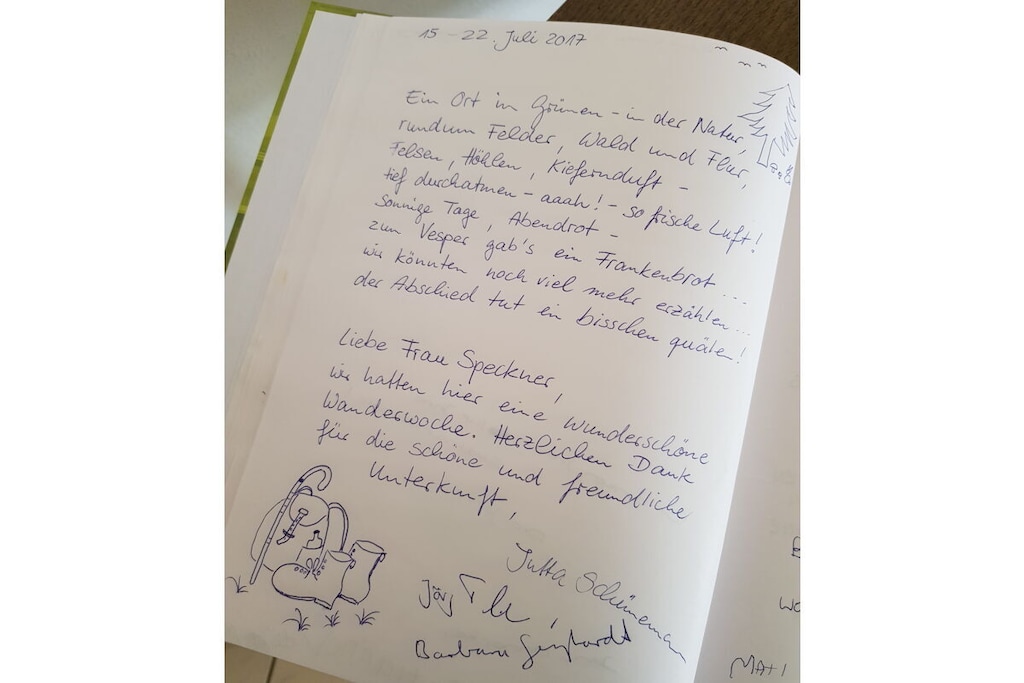 15 - 22. Juli 2017
Ein Ort im Grünen - in der Natur,
rundum Felder, Wald und Flur,
Felsen, Höhlen, Kiefernduft -
tief durchatmen - aaah! - so frische Luft!
Sonnige Tage, Abendrot -
zum Vesper gab's ein Frankenbrot...
wir könnten noch viel mehr erzählen...
der Abschied tut ein bisschen quälen!
Liebe Frau Speckner,
wir hatten hier eine wunderschöne
Wanderwoche. Herzlichen Dank
für die schöne und freundliche
Unterkunft,
Jutta Schünemann
Jörg
Barbara
MATI